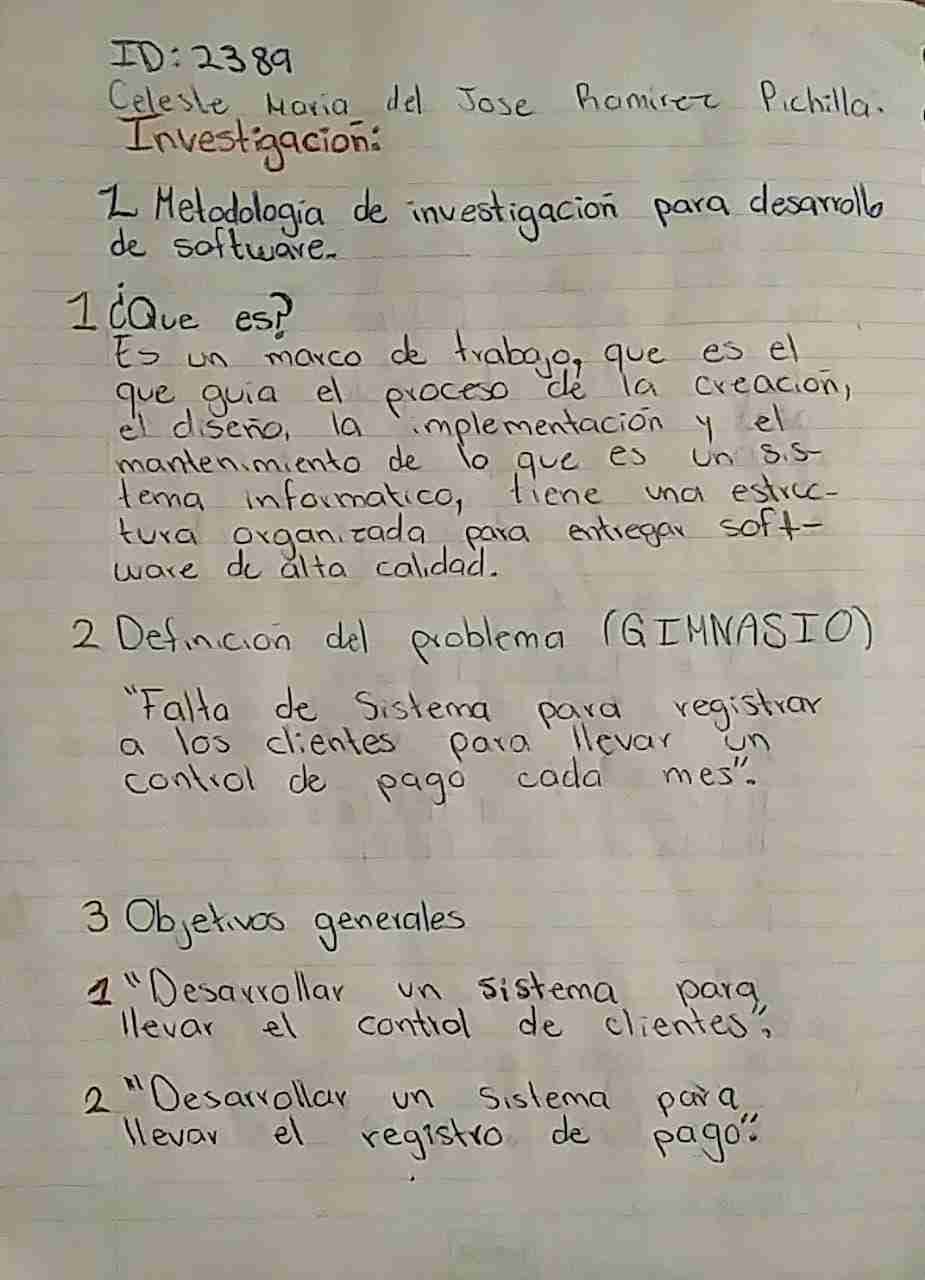 ID: 2389
Celeste Maria del Jose Ramirez Pichilla.
Investigación:
1 Metodología de investigación para desarrollo
de software.
1 ¿Que es?
Es un marco de trabajo, que es el
que guia el proceso de la creación,
el diseño, la implementación y el
mantenimiento de lo que es un sis-
tema informatico, tiene una estruc-
tura organizada para entregar soft-
ware de alta calidad.
2 Definición del problema (GIMNASIO)
"Falta de Sistema para registrar
a los clientes para llevar un
control de pago cada mes".
3 Objetivos generales
1 "Desarrollar un sistema para
llevar el control de clientes",
2 "Desarrollar un sistema para
llevar el registro de pago".